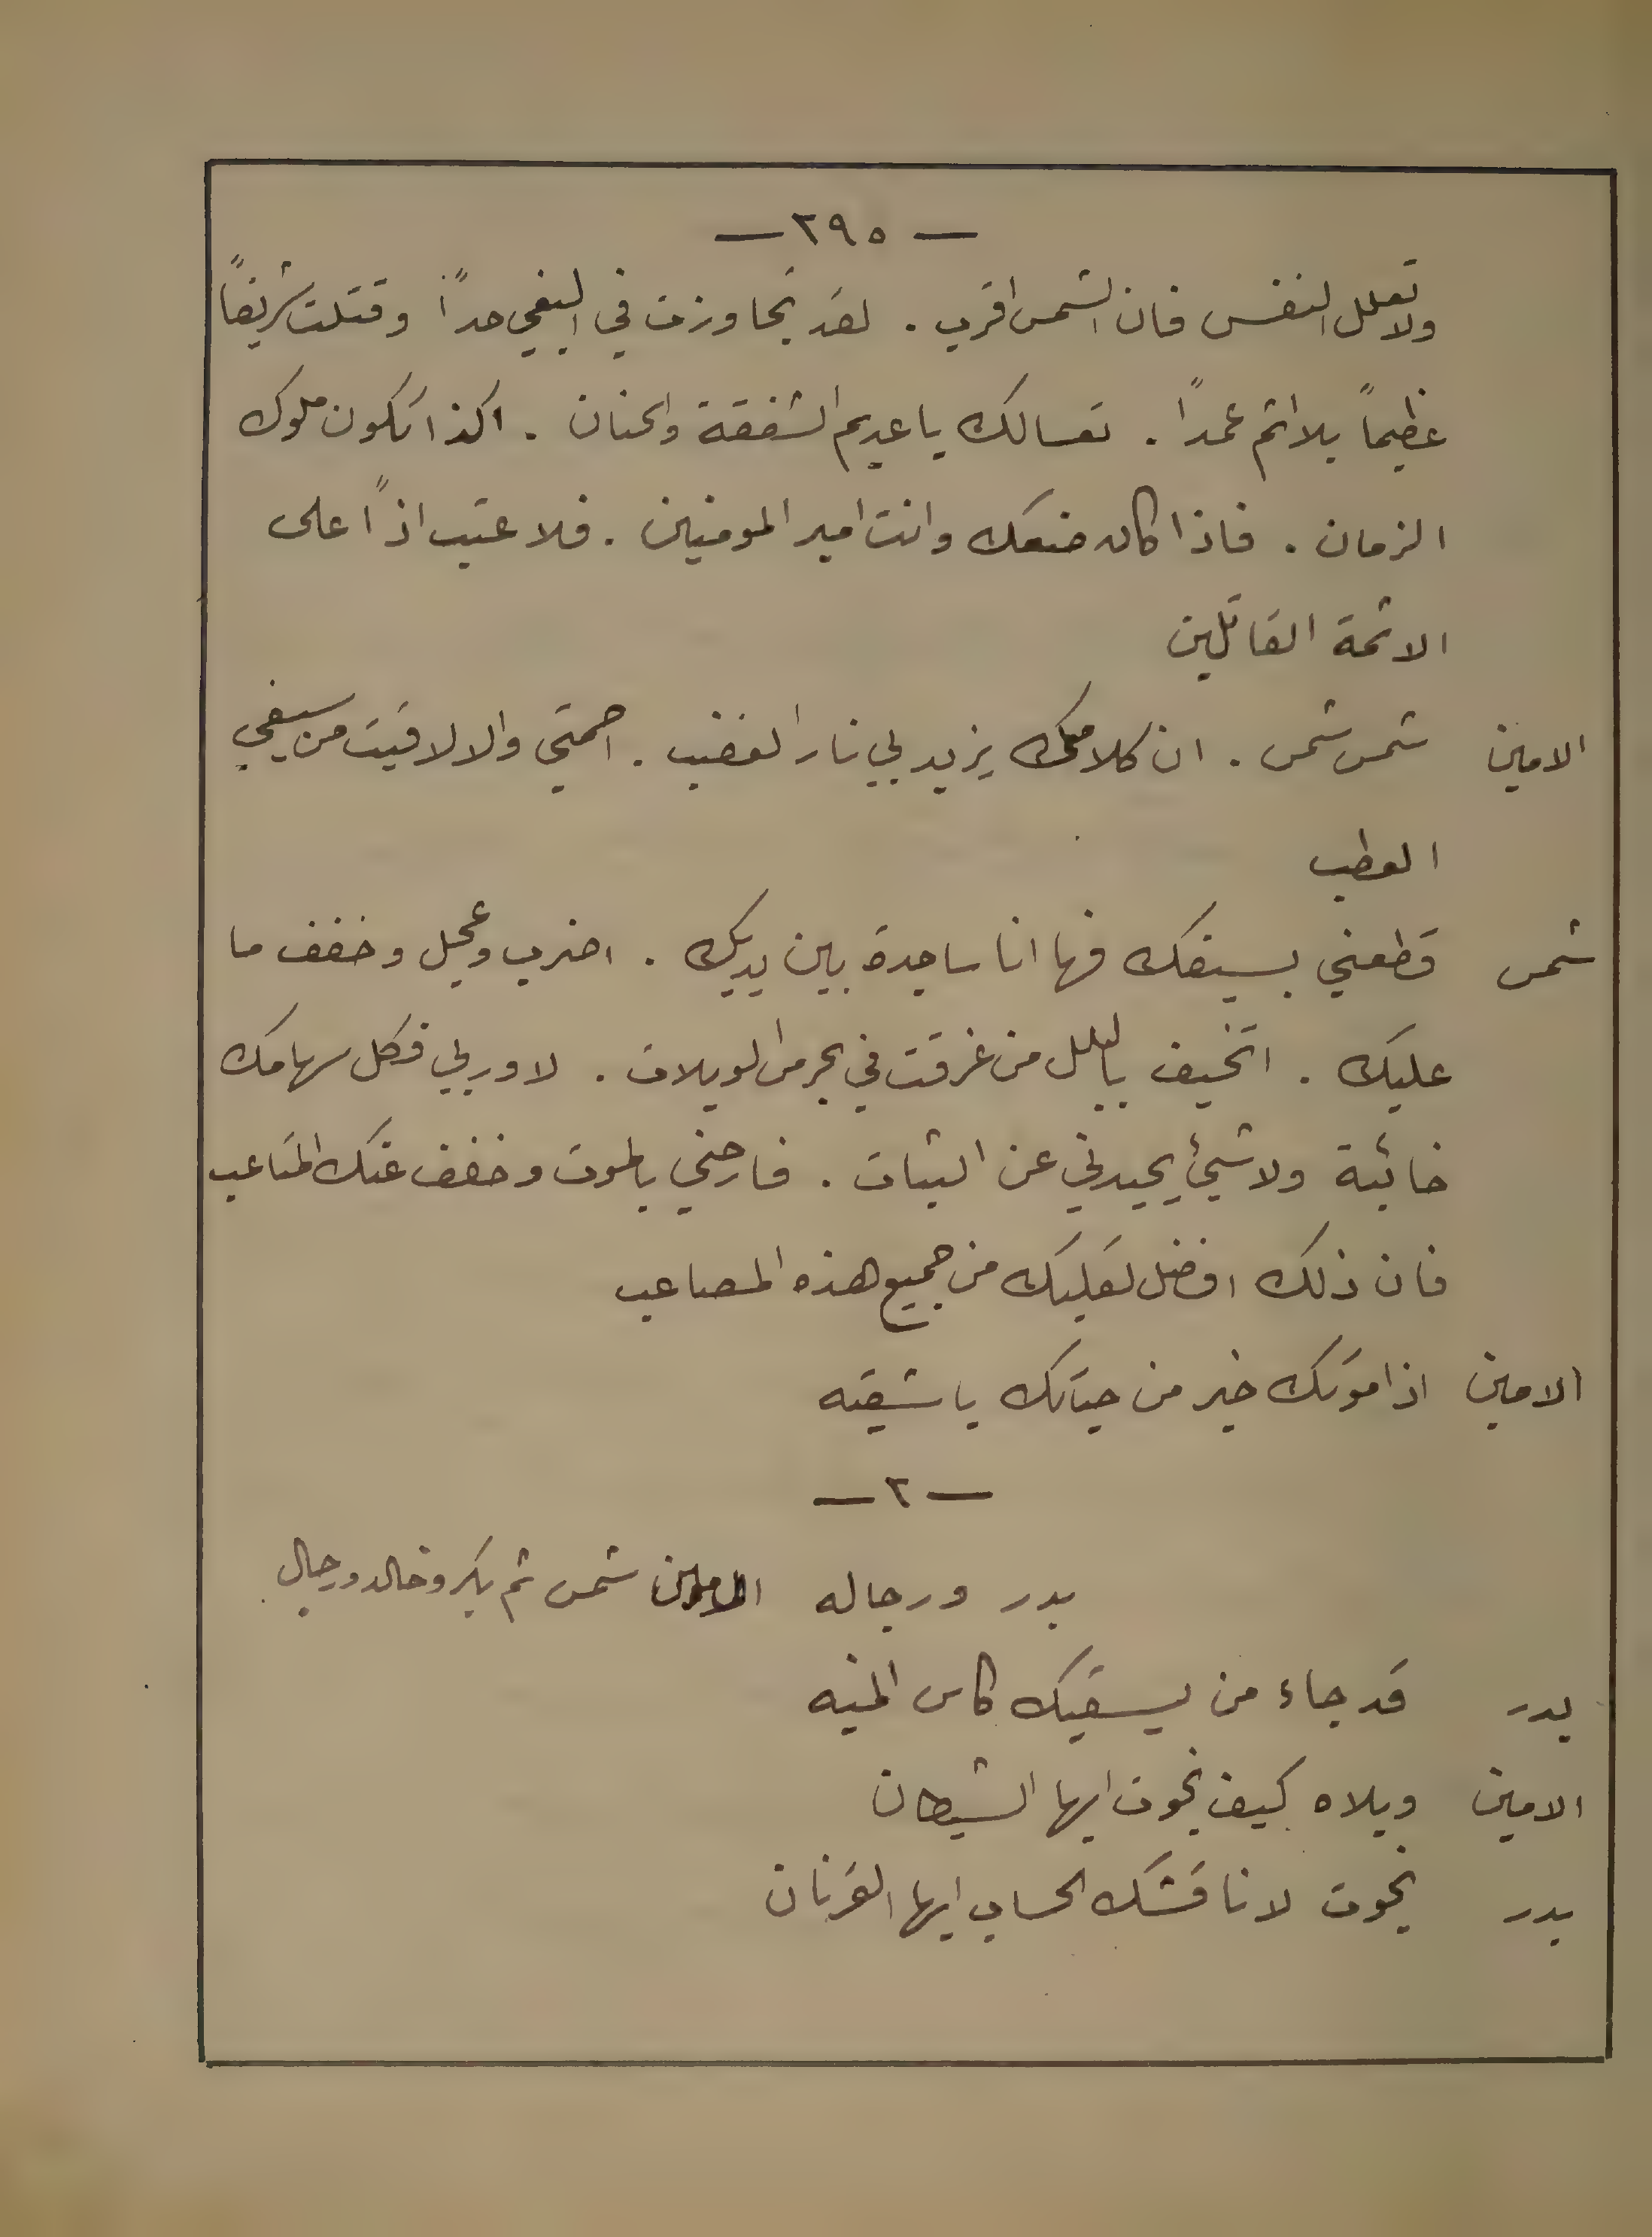 — ٢٩٥ —
ولا تعلل النفس فان الشمس اقرب . لقد تجاوزت في البغي حداً وقتلت شريفاً
عظيماً بلا اثم عمداً . تعسا لك يا عديم الشفقة والحنان . اكذا تكون ملوك
الزمان . فاذا كان صنعك وانت امير المومنين . فلا عتب اذاً على
الائمة القائلين
الامين شمس شمس . ان كلامك يزيد بي نار الغضب . اصمتي والا لاقيت من سيفي
العطب
شمس قطعني بسيفك فها انا ساجدة بين يديك . اضرب وعجل وخفف ما
عليك . اتخيف بالبلل من غرقت في بحر من الويلات . لا وربي فكل سهامك
خائبة ولا شيئ يحيدني عن الثبات . فارحني بالموت وخفف عنك المتاعب
فان ذلك افضل لقلبك من جميع هذه المصاعب
الامين اذا موتك خير من حياتك يا شقيه
— ٢ —
بدر ورجاله الامين شمس ثم بكر وخالد ورجال
بدر قد جاء من يسقيك كاس المنيه
الامين ويلاه كيف نجوت ايها الشيطان
بدر نجوت لاناقشك الحساب ايها القرنان